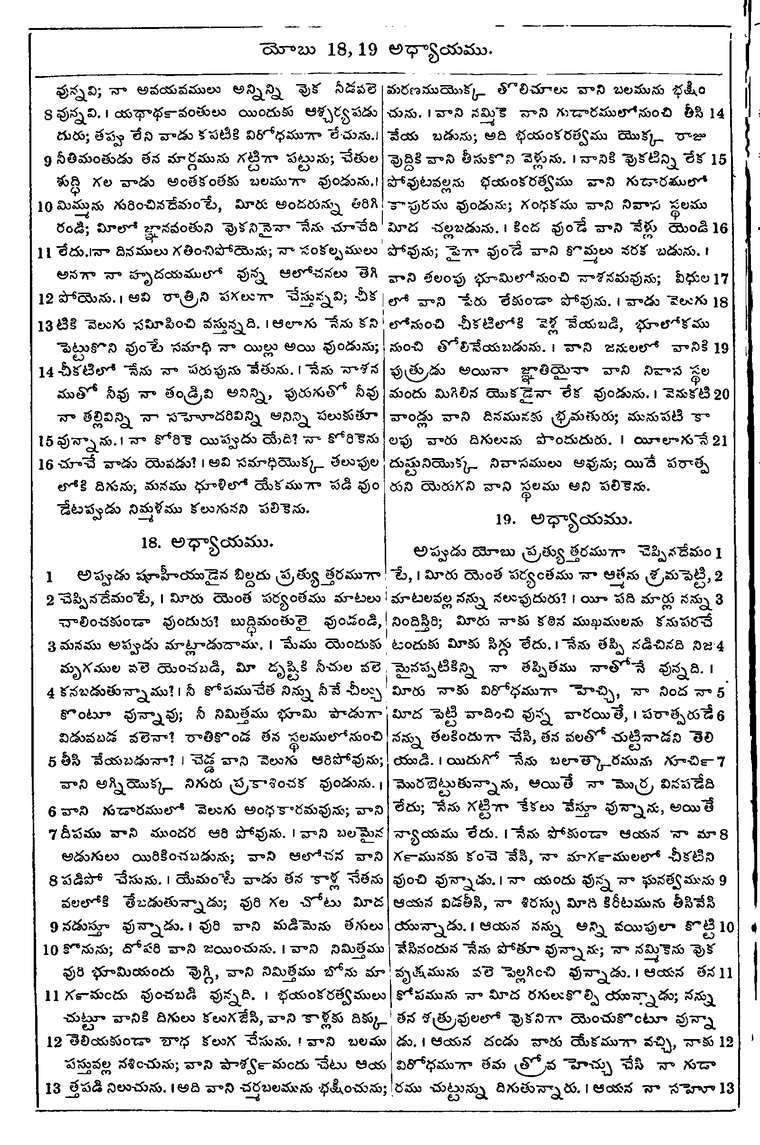 యోబు 18, 19 అధ్యాయము.
వున్నవి; నా అవయవములు అన్నిన్ని వొక నీడవలె
8 వున్నవి. । యథార్థవంతులు యిందుకు ఆశ్చర్యపడు
దురు; తప్పు లేని వాడు కపటికి విరోధముగా లేచును.।
9 నీతిమంతుడు తన మార్గమును గట్టిగా పట్టును; చేతుల
శుద్ధి గల వాడు అంతకంతకు బలముగా వుండును.।
10 మిమ్మును గురించినదేమంటే, మీరు అందరున్ను తిరిగి
రండి; మీలో జ్ఞానవంతుని వొకనినైనా నేను చూచేది
11 లేదు.।నా దినములు గతించిపోయెను; నా సంకల్పములు
అనగా నా హృదయములో వున్న ఆలోచనలు తెగి
12 పోయెను. । అవి రాత్రిని పగలుగా చేస్తున్నవి; చీక
13 టికి వెలుగు సమీపించి వస్తున్నది. । ఆలాగు నేను కని
పెట్టుకొని వుంటే సమాధి నా యిల్లు అయి వుండును;
14 చీకటిలో నేను నా పరుపును వేతును. । నేను నాశన
ముతో నీవు నా తండ్రివి అనిన్ని, పురుగుతో నీవు
నా తల్లివిన్ని నా సహోదరివిన్ని అనిన్ని పలుకుతూ
15 వున్నాను. । నా కోరికె యిప్పుడు యేది? నా కోరికెను
16 చూచే వాడు యెవడు? । అవి సమాధియొక్క తలుపుల
లోకి దిగును; మనము ధూళిలో యేకముగా పడి వుం
డేటప్పుడు నిమ్మళము కలుగునని పలికెను.
18. అధ్యాయము.
1 అప్పుడు షూహీయుడైన బిల్దదు ప్రత్యుత్తరముగా
2 చెప్పినదేమంటే, । మీరు యెంత పర్యంతము మాటలు
చాలించకుండా వుందురు? బుద్ధిమంతులై వుండండి,
3 మనము అప్పుడు మాట్లాడుదాము. । మేము యెందుకు
మృగముల వలె యెంచబడి, మీ దృష్టికి నీచుల వలె
4 కనబడుతున్నాము? । నీ కోపముచేత నిన్ను నీవే చీల్చు
కొంటూ వున్నావు; నీ నిమిత్తము భూమి పాడుగా
విడువబడ వలెనా? రాతికొండ తన స్థలములోనుంచి
5 తీసి వేయబడునా? । చెడ్డ వాని వెలుగు ఆరిపోవును;
వాని అగ్నియొక్క నిగురు ప్రకాశించక వుండును. ।
6 వాని గుడారములో వెలుగు అంధకారమవును; వాని
7 దీపము వాని ముందర ఆరి పోవును. । వాని బలమైన
అడుగులు యిరికించబడును; వాని ఆలోచన వాని
8 పడిపో చేసును. । యేమంటే వాడు తన కాళ్ల చేతను
వలలోకి తేబడుతున్నాడు; వురి గల చోటు మీద
9 నడుస్తూ వున్నాడు. । వురి వాని మడిమెను తగులు
10 కొనును; దోపరి వాని జయించును. । వాని నిమిత్తము
వురి భూమియందు వొగ్గి, వాని నిమిత్తము బోను మా
11 ర్గమందు వుంచబడి వున్నది. । భయంకరత్వములు
చుట్టూ వానికి దిగులు కలుగజేసి, వాని కాళ్లకు దిక్కు
12 తెలియకుండా బాధ కలుగ చేసును. । వాని బలము
పస్తువల్ల నశించును; వాని పార్శ్వమందు చేటు ఆయ
13 త్తపడి నిలుచును. । అది వాని చర్మబలమును భక్షించును;
మరణముయొక్క తొలిచూలు వాని బలమును భక్షిం
చును. । వాని నమ్మికె వాని గుడారములోనుంచి తీసి 14
వేయ బడును; అది భయంకరత్వము యొక్క రాజు
వొద్దికి వాని తీసుకొని వెళ్లును. । వానికి వొకటిన్ని లేక 15
పోవుటవల్లను భయంకరత్వము వాని గుడారములో
కాపురము వుండును; గంధకము వాని నివాస స్థలము
మీద చల్లబడును. । కింద వుండే వాని వేళ్లు యెండి 16
పోవును; పైగా వుండే వాని కొమ్మలు నరక బడును. ।
వాని తలంపు భూమిలోనుంచి నాశనమవును; వీధుల 17
లో వాని పేరు లేకుండా పోవును. । వాడు వెలుగు 18
లోనుంచి చీకటిలోకి వెళ్ల వేయబడి, భూలోకము
నుంచి తోలివేయబడును. । వాని జనులలో వానికి 19
పుత్రుడు అయినా జ్ఞాతియైనా వాని నివాస స్థల
మందు మిగిలిన యొకడైనా లేక వుండును. । వెనుకటి 20
వాండ్లు వాని దినమునకు భ్రమతురు; మునుపటి కా
లపు వారు దిగులును పొందుదురు. । యీలాగునే 21
దుష్టునియొక్క నివాసములు అవును; యిదే పరాత్ప
రుని యెరుగని వాని స్థలము అని పలికెను.
19. అధ్యాయము.
అప్పుడు యోబు ప్రత్యుత్తరముగా చెప్పినదేమం 1
టే, । మీరు యెంత పర్యంతము నా ఆత్మను శ్రమపెట్టి, 2
మాటలవల్ల నన్ను నలుపుదురు? । యీ పది మార్లు నన్ను 3
నిందిస్తిరి; మీరు నాకు కఠిన ముఖములను కనుపరచే
టందుకు మీకు సిగ్గు లేదు. । నేను తప్పి నడిచినది నిజ 4
మైనప్పటికిన్ని నా తప్పితము నాతోనే వున్నది. ।
మీరు నాకు విరోధముగా హెచ్చి, నా నింద నా 5
మీద పెట్టి వాదించి వున్న వారయితే, । పరాత్పరుడే 6
నన్ను తలకిందుగా చేసి, తన వలతో చుట్టినాడని తెలి
యుడి. । యిదుగో నేను బలాత్కారమును గూర్చి 7
మొరబెట్టుతున్నాను, అయితే నా మొర్ర వినపడేది
లేదు; నేను గట్టిగా కేకలు వేస్తూ వున్నాను, అయితే
న్యాయము లేదు. । నేను పోకుండా ఆయన నా మా 8
ర్గమునకు కంచె వేసి, నా మార్గములలో చీకటిని
వుంచి వున్నాడు. । నా యందు వున్న నా ఘనత్వమును 9
ఆయన విడతీసి, నా శిరస్సు మీది కిరీటమును తీసివేసి
యున్నాడు. । ఆయన నన్ను అన్ని వయిపులా కొట్టి 10
వేసినందున నేను పోతూ వున్నాను; నా నమ్మికెను వొక
వృక్షమును వలె పెల్లగించి వున్నాడు. । ఆయన తన 11
కోపమును నా మీద రగులుకొల్పి యున్నాడు; నన్ను
తన శత్రువులలో వొకనిగా యెంచుకొంటూ వున్నా
డు. । ఆయన దండు వారు యేకముగా వచ్చి, నాకు 12
విరోధముగా తమ త్రోవ హెచ్చు చేసి నా గుడా
రము చుట్టున్ను దిగుతున్నారు. । ఆయన నా సహో 13